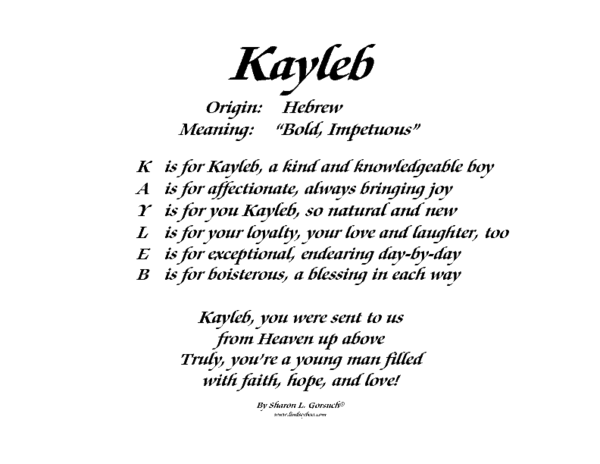 Kayleb
Origin: Hebrew
Meaning: "Bold, Impetuous"
K is for Kayleb, a kind and knowledgeable boy
A is for affectionate, always bringing joy
Y is for you Kayleb, so natural and new
L is for your loyalty, your love and laughter, too
E is for exceptional, endearing day-by-day
B is for boisterous, a blessing in each way
Kayleb, you were sent to us
from Heaven up above
Truly, you're a young man filled
with faith, hope, and love!
By Sharon L. Gorsuch©